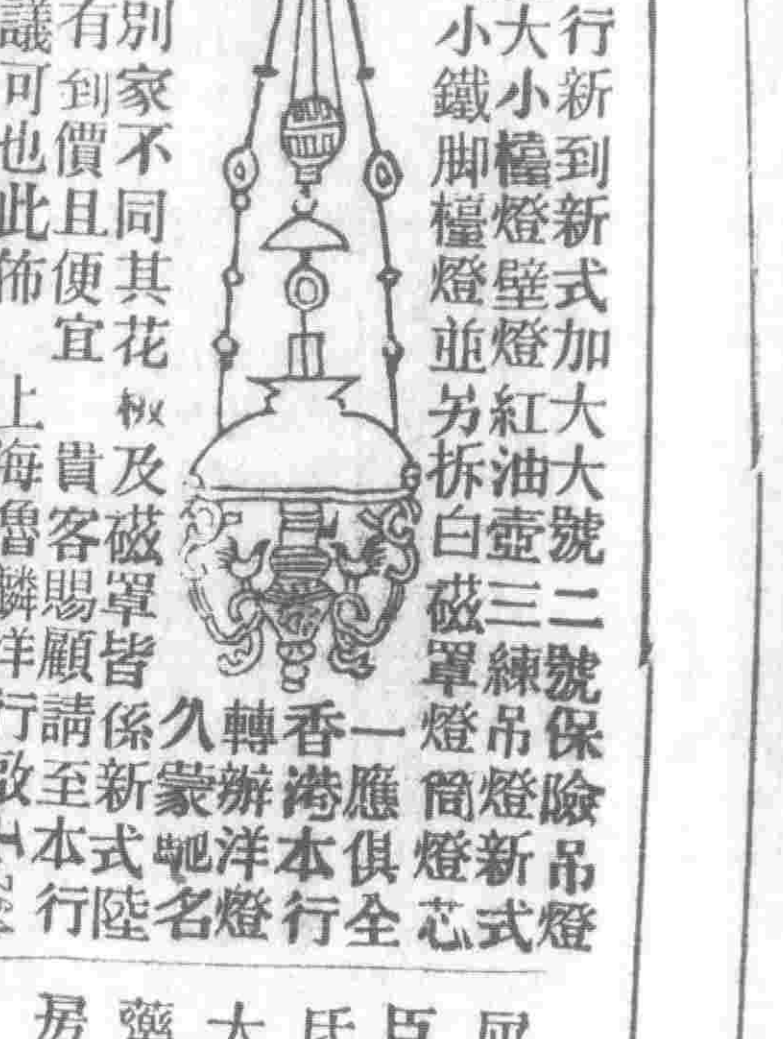 行新到新式加大大號二號保險吊燈
大小檯燈壁燈紅油壺三練吊燈新式
小鐵脚檯燈並另拆白磁罩燈筒燈芯
一應俱全
香港本行
轉辦洋燈
久蒙馳名
別家不同其花板及磁罩皆係新式陸
有到價且便宜 貴客賜顧請至本行
議可也此佈 上海魯麟洋行啟
屈臣氏大藥房